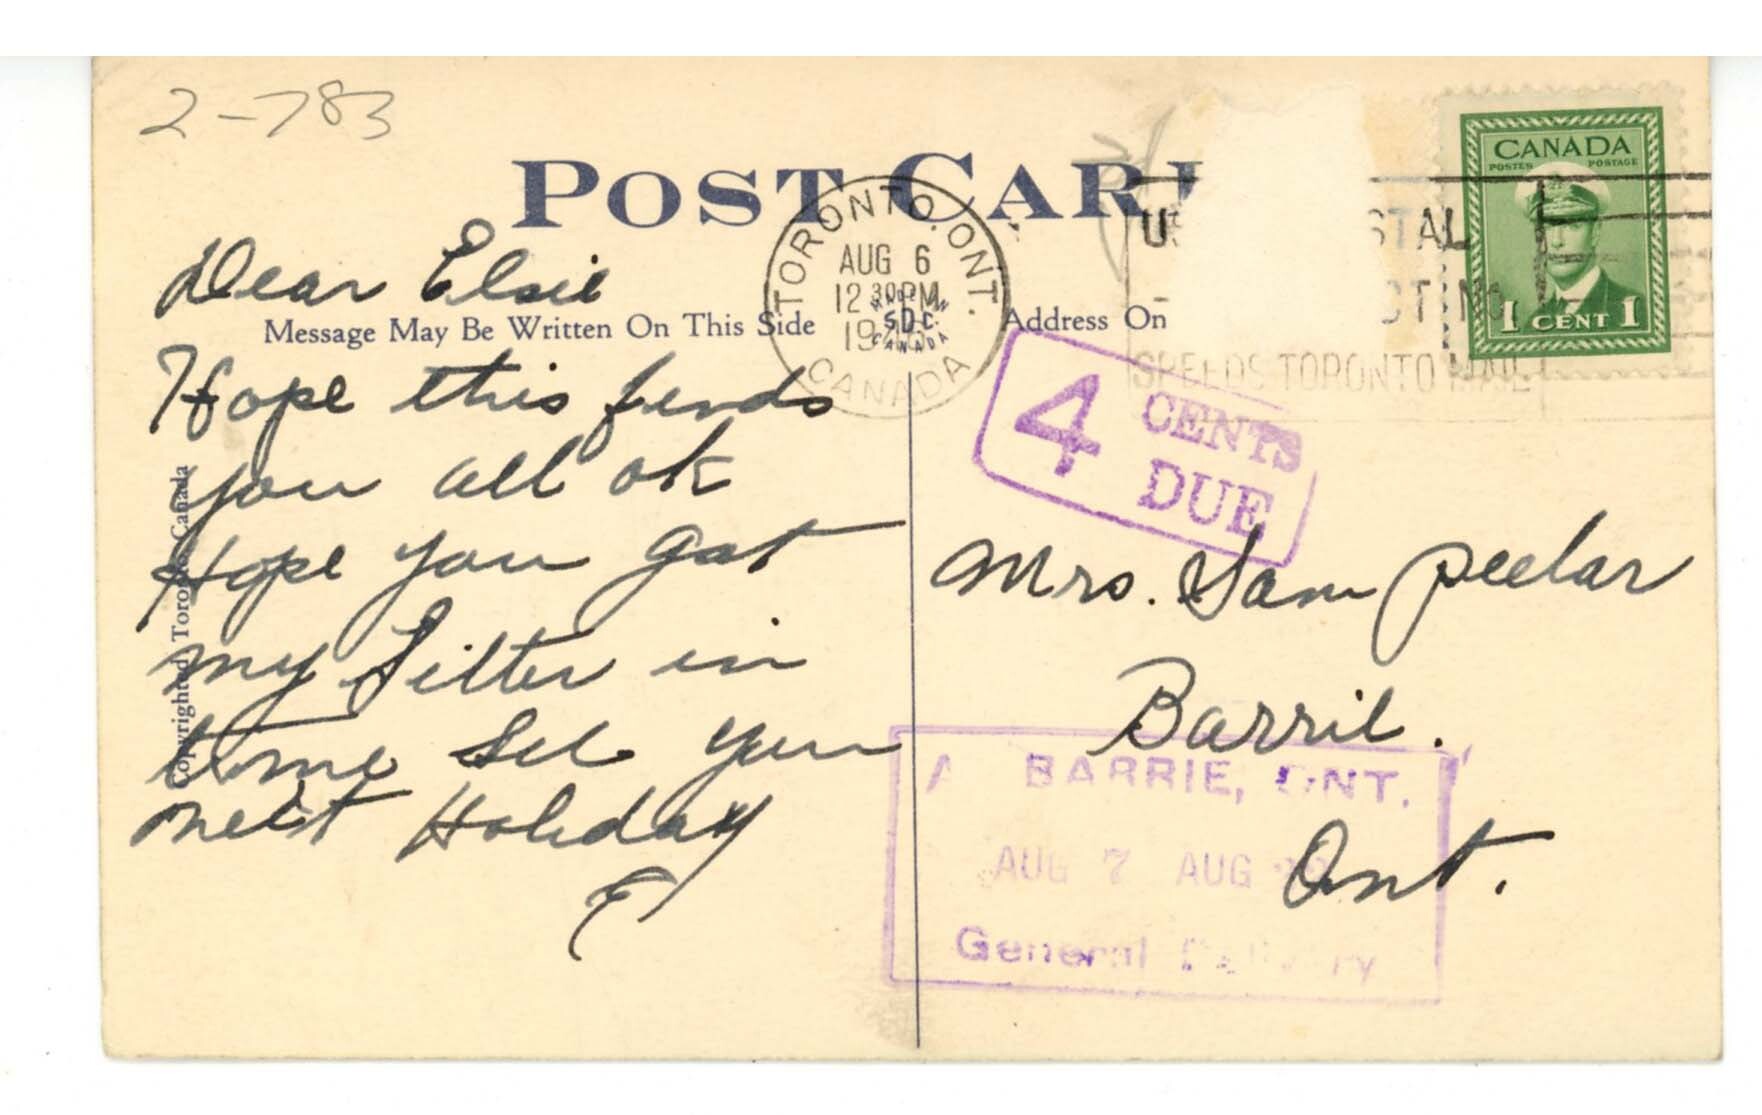 2-783
POST CAR
CANADA
POSTES POSTAGE
1 CENT 1
TORONTO, ONT.
AUG 6
12 30 PM
CANADA
MADE IN
S.D.C.
CANADA
STAL
CTING
SPEEDS TORONTO MAIL
Message May Be Written On This Side
Address On
4 CENTS
DUE
Dear Elsie
Hope this finds
you all ok
Hope you got
my Litter in
time See you
next Holiday
E
Copyrighted Toronto Canada
Mrs. Sam Peelar
Barrie.
Ont.
BARRIE, ONT.
AUG 7 AUG
General Delivery